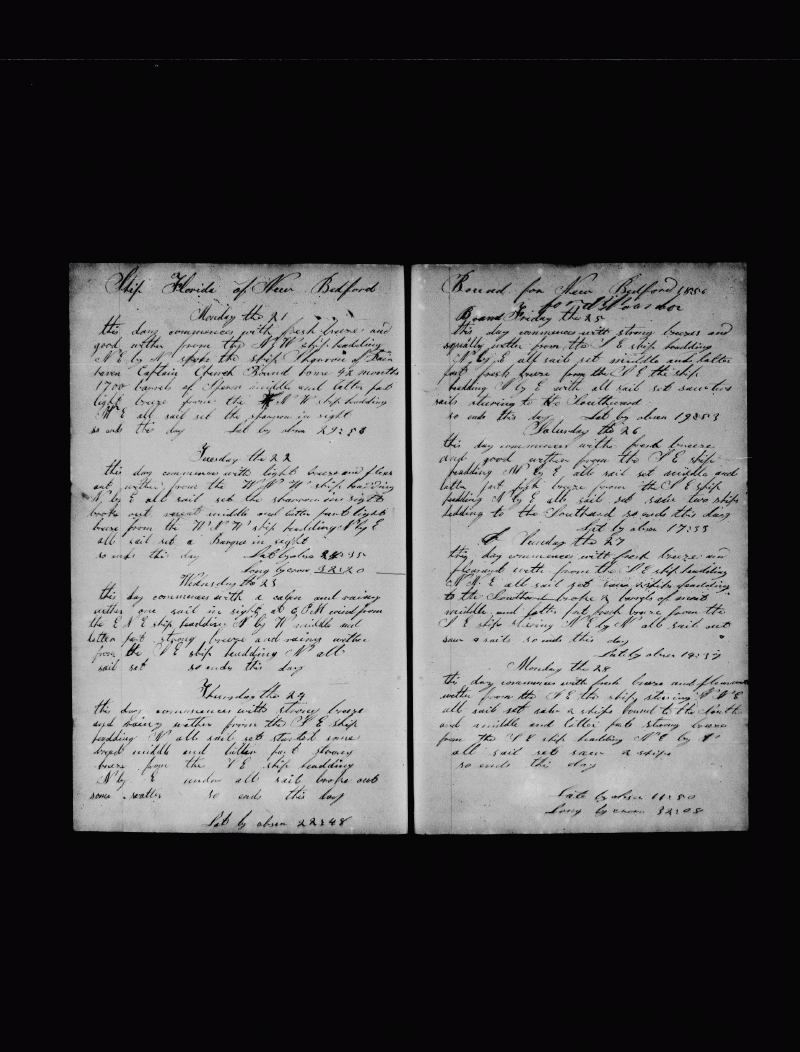 Ship Florida of New Bedford
Monday the 21
this day commences with fresh breeze and
good wether from the N W ship heading
N E by N spoke the ship of Fair
haven Captain Church Bound home 42 months
1700 barrels of Sperm middle and latter part
light breeze from the N W ship heading
N E all sail set the in sight
so ends this day Lat by obser 29:58
Tuesday the 22
this day commences with light breeze and pleas
ant wether from the W N W ship heading
N by E all sail set the in sight
broke out meat middle and latter part light
breze from the W N W ship heading N by E
all sail set a Barque in sight
so ends this day Lat by obser
Long by cron 32:20
Wednsday the 23
this day commences with a calm and rainy
wether one sail in sight at 6 P M wind from
the E N E ship heading N by W middle and
latter part strong breeze and rainy wether
from the S E ship heading N all
sail set so ends this day
Thursday the 24
this day commences with strong breeze
and rainy wether from the S E ship
heading N all sail set started some
bread middle and latter part strong
breeze from the S E ship heading
N by E under all sail broke out
some water so ends this day
Lat by obser 22:48
Bound for New Bedford 1856
on board
Friday the 25
this day commences with strong breezes and
squally wether from the S E ship heading
N by E all sail set middle and latter
part fresh breeze from the S E the ship
heading N by E with all sail set saw two
sails steering to the Southward
so ends this day Lat by obser 19:53
Saturday the 26
this day commences withe fresh breeze
and good wether from the S E ship
heading N by E all sail set middle and
latter part fresh breeze from the S E ship
heading N by E all sail set saw two ships
heading to the Southard so ends this day
Lat by obser 17:33
the 27
this day commences with fresh breeze and
pleasant weth from the S E ship heading
N N E all sail set saw 2 ships heading
to the Southard broke out barrels of meat
middle and latter part fresh breze from the
S E ship stering N E by N all sail out
saw 2 sails so ends this day
Lat by obser
Monday the 28
this day commences with fresh breeze and pleasant
wether from the S E the ship stering N N E
all sail set saw 2 ships bound to the South
ard middle and latter part strong breeze
from the S E ship heading N E by N
all sail set saw a ship
so ends this day
Late by obser 11:50
Long by cron 32:08